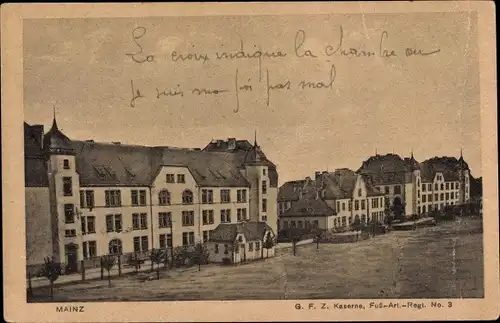 La croix indique la chambre ou
je suis pas mal
MAINZ
G. F. Z. Kaserne, Fuß-Art.-Regt. No. 3